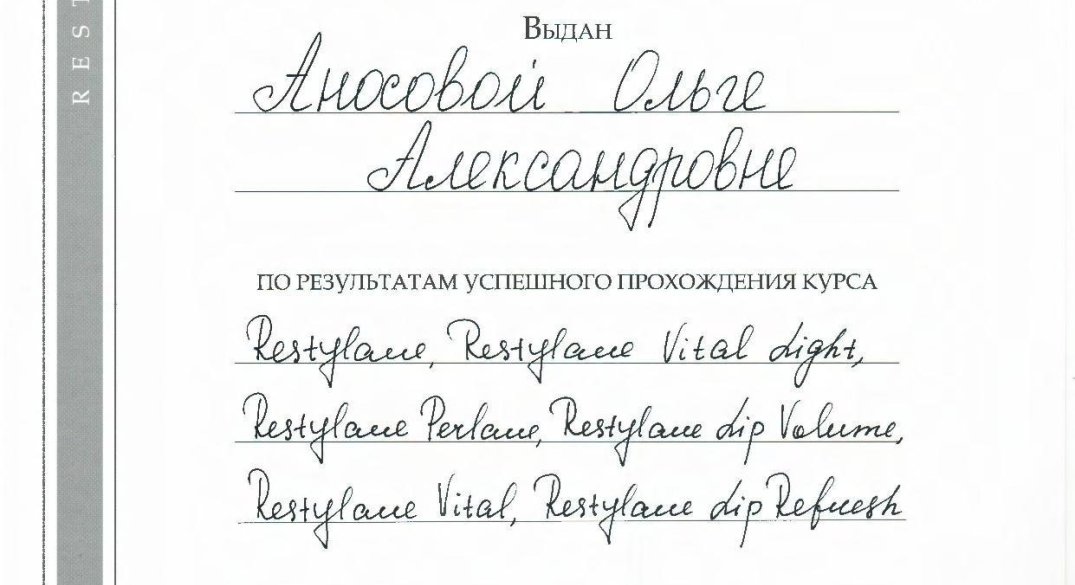 REST
Выдан
Аносовой Ольге
Александровне
ПО РЕЗУЛЬТАТАМ УСПЕШНОГО ПРОХОЖДЕНИЯ КУРСА
Restylane, Restylane Vital Light,
Restylane Perlane, Restylane Lip Volume,
Restylane Vital, Restylane Lip Refresh